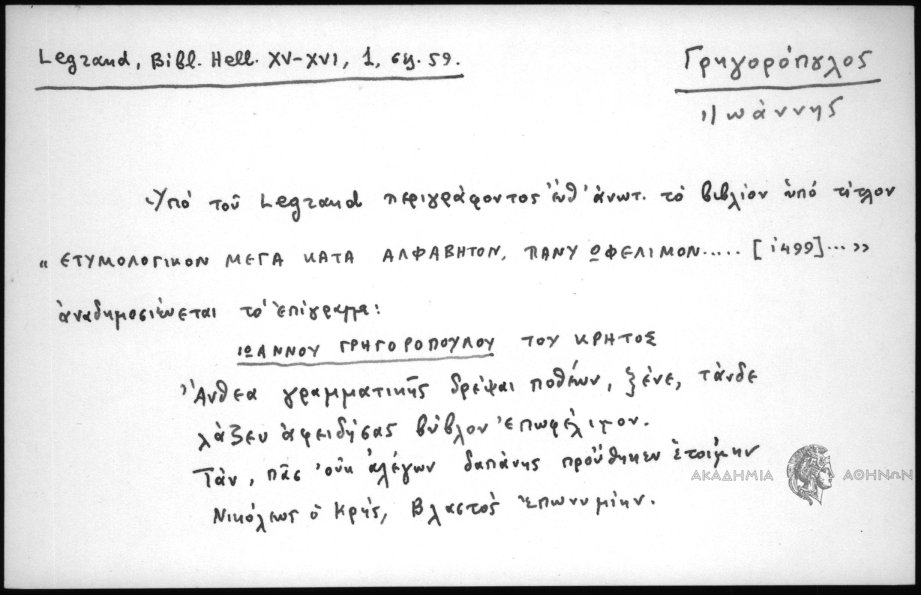 Legrand, Bibl. Hell. XV-XVI, 1, σελ. 59.
Γρηγορόπουλος
Ἰωάννης
Ὑπό τοῦ Legrand περιγράφοντος ἐνθ' ἀνωτ. τό βιβλίον ὑπό τίτλον
« ΕΤΥΜΟΛΟΓΙΚΟΝ ΜΕΓΑ ΚΑΤΑ ΑΛΦΑΒΗΤΟΝ, ΠΑΝΥ ΩΦΕΛΙΜΟΝ..... [1499]...»
ἀναδημοσιεύεται τό ἐπίγραμμα:
ΙΩΑΝΝΟΥ ΓΡΗΓΟΡΟΠΟΥΛΟΥ ΤΟΥ ΚΡΗΤΟΣ
Ἄνθεα γραμματικῆς δρέψαι ποθέων, ξένε, τάνδε
λάζευ ἀφειδήσας βύβλον ἐπωφέλιμον.
Τάν, πᾶς οὐκ ἀλέγων δαπάνης προὔθηκεν ἑτοίμην
Νικόλεως ὁ Κρής, Βλαστός ἐπωνυμίην.
ΑΚΑΔΗΜΙΑ ΑΘΗΝΩΝ